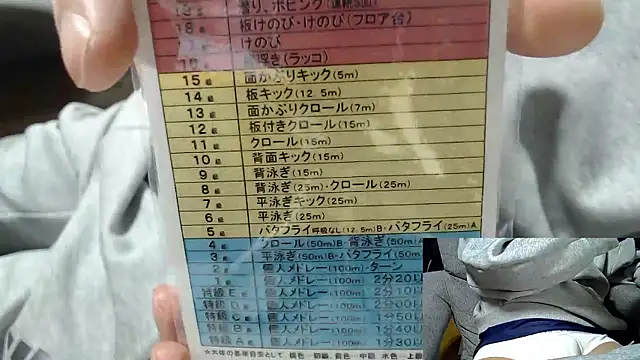 潜り、ボビング(連続5回)
18 級 板けのび・けのび(フロア台)
けのび
浮き(ラッコ)
15 級 面かぶりキック(5m)
14 級 板キック(12.5m)
13 級 面かぶりクロール(7m)
12 級 板付きクロール(15m)
11 級 クロール(15m)
10 級 背面キック(15m)
9 級 背泳ぎ(15m)
8 級 背泳ぎ(25m)・クロール(25m)
7 級 平泳ぎキック(25m)
6 級 平泳ぎ(25m)
5 級 バタフライ呼吸なし(12.5m)B・バタフライ(25m)A
4 級 クロール(50m)B・背泳ぎ(50m)A
3 級 平泳ぎ(50m)B・バタフライ(50m
2 級 個人メドレー(100m)・ターン
1 級 個人メドレー(100m) 2分20
特級 E 級 個人メドレー(100m) 2分10
特級 D 級 個人メドレー(100m) 2分00
特級 C 級 個人メドレー(100m) 1分50
特級 B 級 個人メドレー(100m) 1分40
特級 A 級 個人メドレー(100m) 1分30
☆大体の基準目安として 桃色…初級、黄色…中級、水色…上級